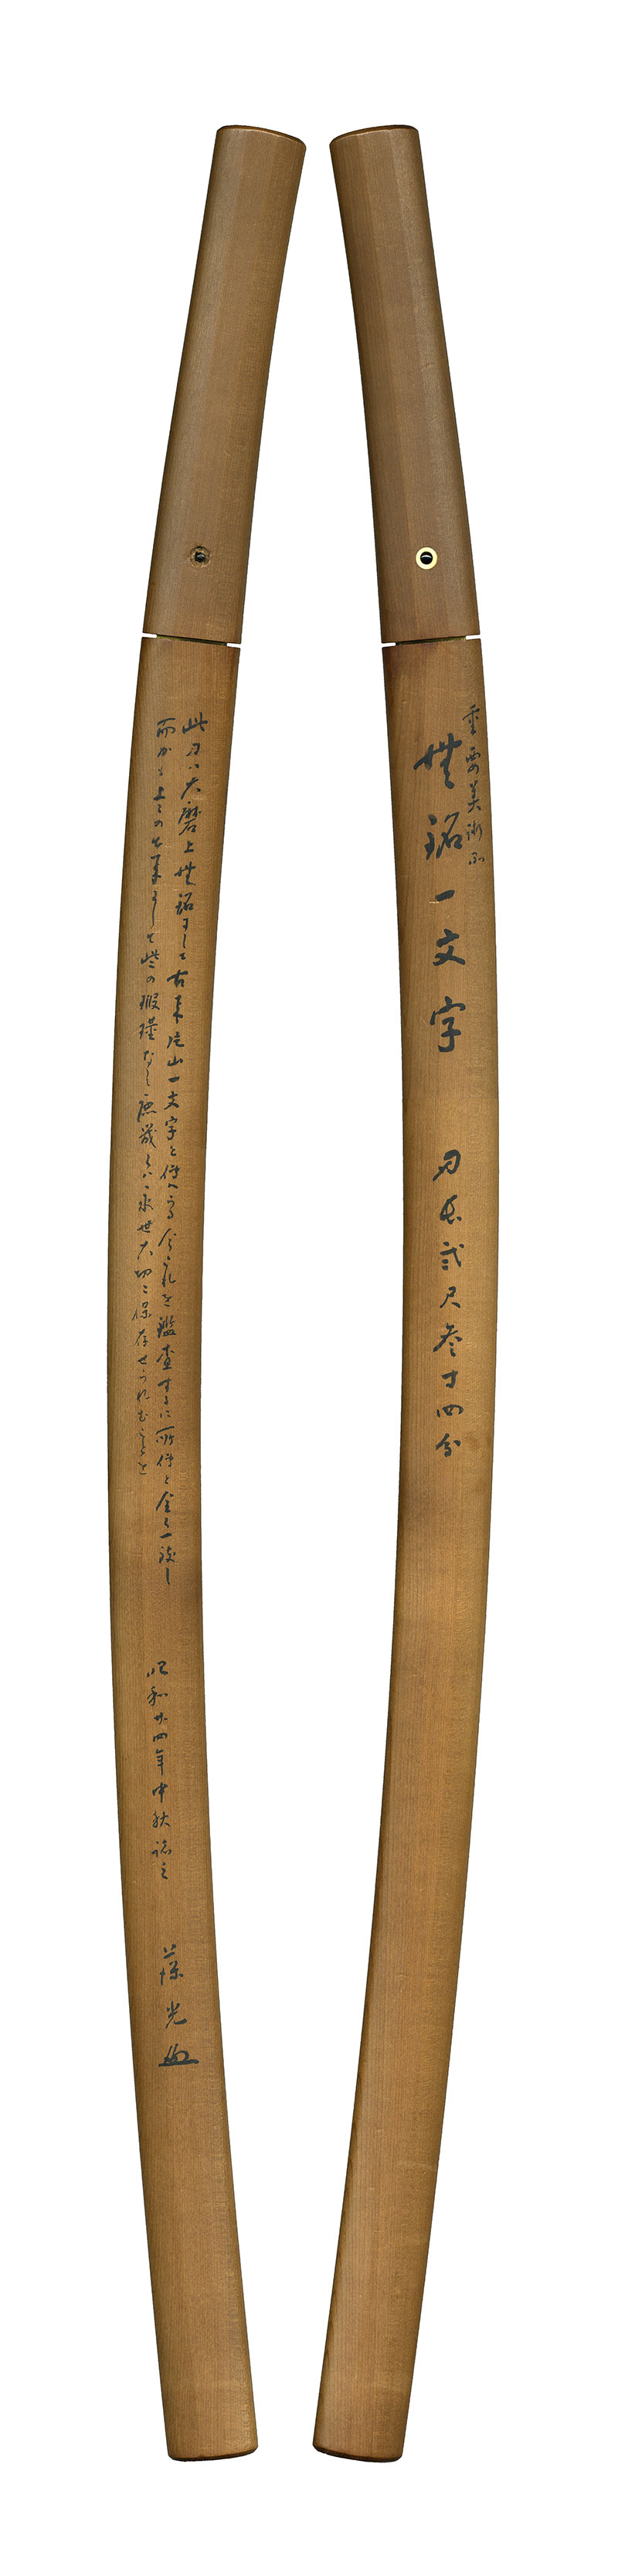 重要美術品
無銘一文字　刃長弐尺参寸四分
此刀ハ大磨上無銘にして古来片山一文字と傳へらる今これを鑑査するに所傳と全く一致し
而かも上々の出来にして些の瑕瑾なし庶幾くハ永世大切ニ保存せられむことを
昭和廿四年中秋誌之
葆光